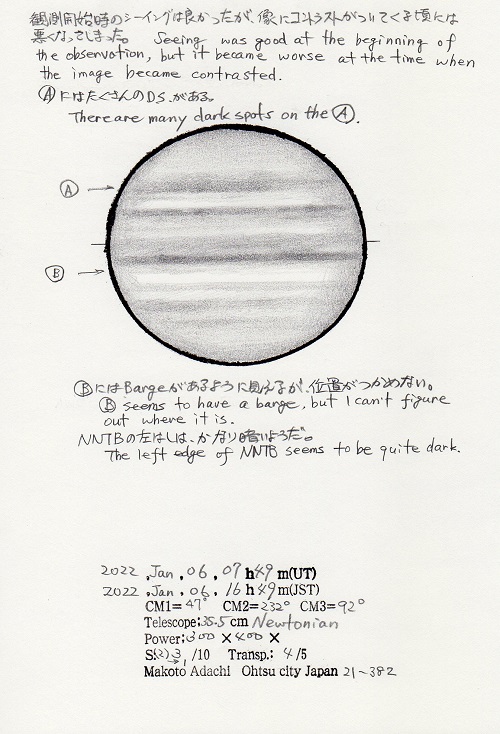 観測開始時のシーイングは良かったが、像にコントラストがついてくる頃には
悪くなってしまった。 Seeing was good at the beginning of
the observation, but it became worse at the time when
the image became contrasted.
ⒶにはたくさんのDS.がある。
There are many dark spots on the Ⓐ.
Ⓐ
Ⓑ
ⒷにはBargeがあるように見えるが、位置がつかめない。
Ⓑ seems to have a barge, but I can't figure
out where it is.
NNTBの左はしは、かなり暗いようだ。
The left edge of NNTB seems to be quite dark.
2022 ,Jan , 06 , 07 h49 m(UT)
2022 ,Jan , 06 , 16 h49m(JST)
CM1= 47° CM2=232° CM3=92°
Telescope:35.5cm Newtonian
Power:300 ×400 ×
/10 Transp.: 4/5
Makoto Adachi Ohtsu city Japan 21~382